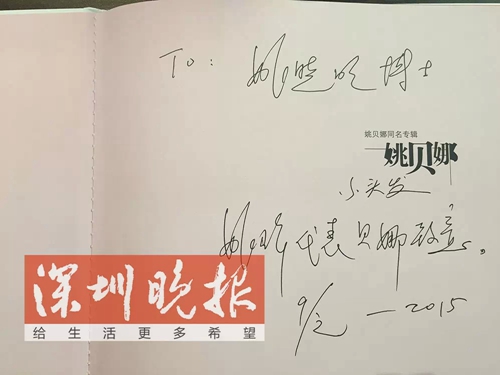 To: 姚晓明博士
姚贝娜同名专辑
姚贝娜
小头发
姚峰代表贝娜致意。
—2015
深圳晚报
给生活更多希望